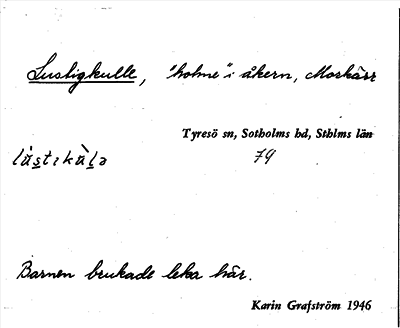 Lustigkulle, "holme" i åkern, Morkärr
Tyresö sn, Sotholms hd, Sthlms län
79
Barnen brukade leka här.
Karin Grafström 1946